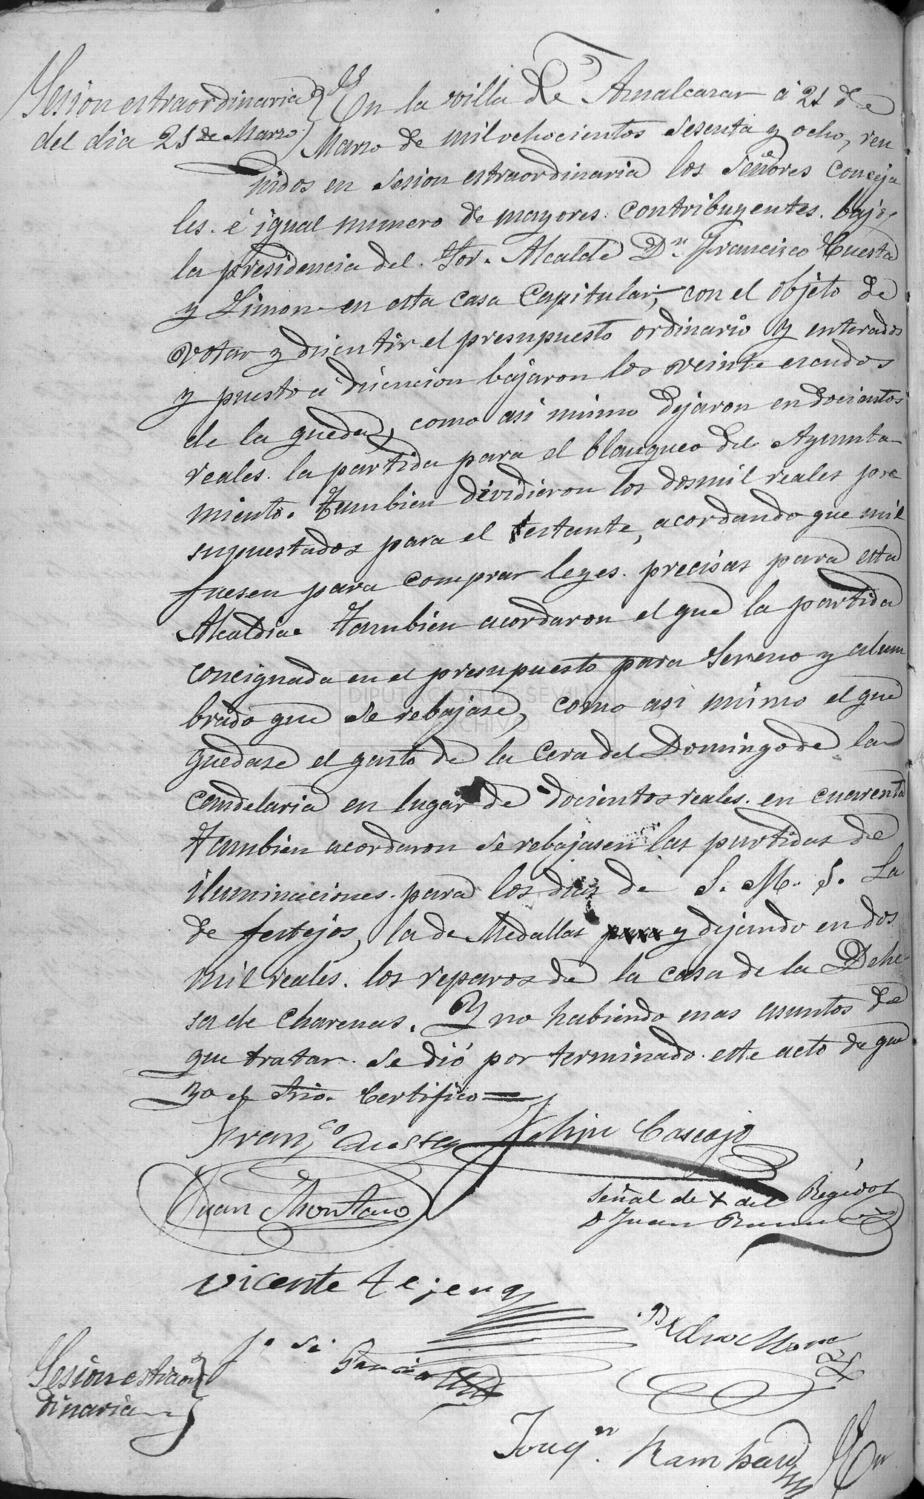 Sesion estraordinaria
del dia 21 de Marzo
En la villa de Aznalcazar á 21 de
Marzo de mil ochocientos sesenta y ocho, reu
nidos en sesion estraordinaria los Señores conceja
les é igual numero de mayores contribuyentes bajo
la presidencia del Sor. Alcalde Dn. Francisco Cuesta
y Limon en esta casa Capitular, con el objeto de
votar y discutir el presupuesto ordinario y enterados
y puesto á discucion bajaron los veinte escudos
de la queda, como asi mismo dejaron en docientos
reales la partida para el blanqueo del Ayunta
miento. Tambien dividieron los dosmil reales pre
supuestados para el estante, acordando que mil
fuesen para comprar leyes precisas para esta
Alcaldia. Tambien acordaron el que la partida
concignada en el presupuesto para Sereno y alum
brado que se rebajase, como asi mismo el que
quedase el gasto de la cera del Domingo de la
Candelaria en lugar de docientos reales en cuarenta
Tambien acordaron se rebajasen las partidas de
iluminaciones para los dias de S. M. La
de festejos, la de Medallas y dejando en dos
mil reales los reparos de la casa de la Dehe
sa de Charenas. Y no habiendo mas asuntos de
que tratar se dió por terminado este acto de que
yo el Srio. Certifico =
Franco Cuesta Felipe Cascajo
Juan Montaño
Señal de + del Regidor
D Juan
Vicente
Jose Garcia
Sesion estraor
dinaria
Joaqn.
En
DIPUTACIÓN DE SEVILLA
ARCHIVO